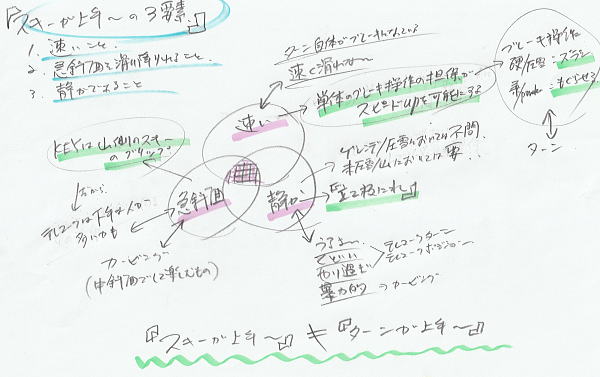 『スキーが上手〜の3要素』
1. 速いこと.
2. 急斜面を滑り降りれること.
3. 静かであること
ターン自体がブレーキになっている
速く滑れな〜
単体のブレーキ操作の担保が
スピードupを可能にする
ブレーキ操作は
硬/圧雪：ズラシ
ターン
速い
KEYは山側のスキー
のグリップ
急斜面
静か
ゲレンデ/圧雪においては不問
非圧雪/山においては要
だから
テレマークは下手な人が
多いかも
カービング
(中斜面でして楽しむもの)
うるさ〜
やり過ぎ
暴力的
テレマークターン
テレマークポジション
→カービング
『スキーが上手〜』≠『ターンが上手〜』